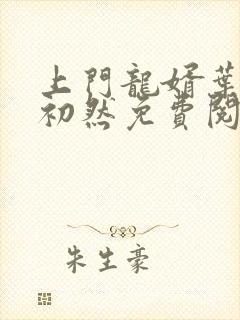 上門龍婿葉
初然免費閱
朱生豪